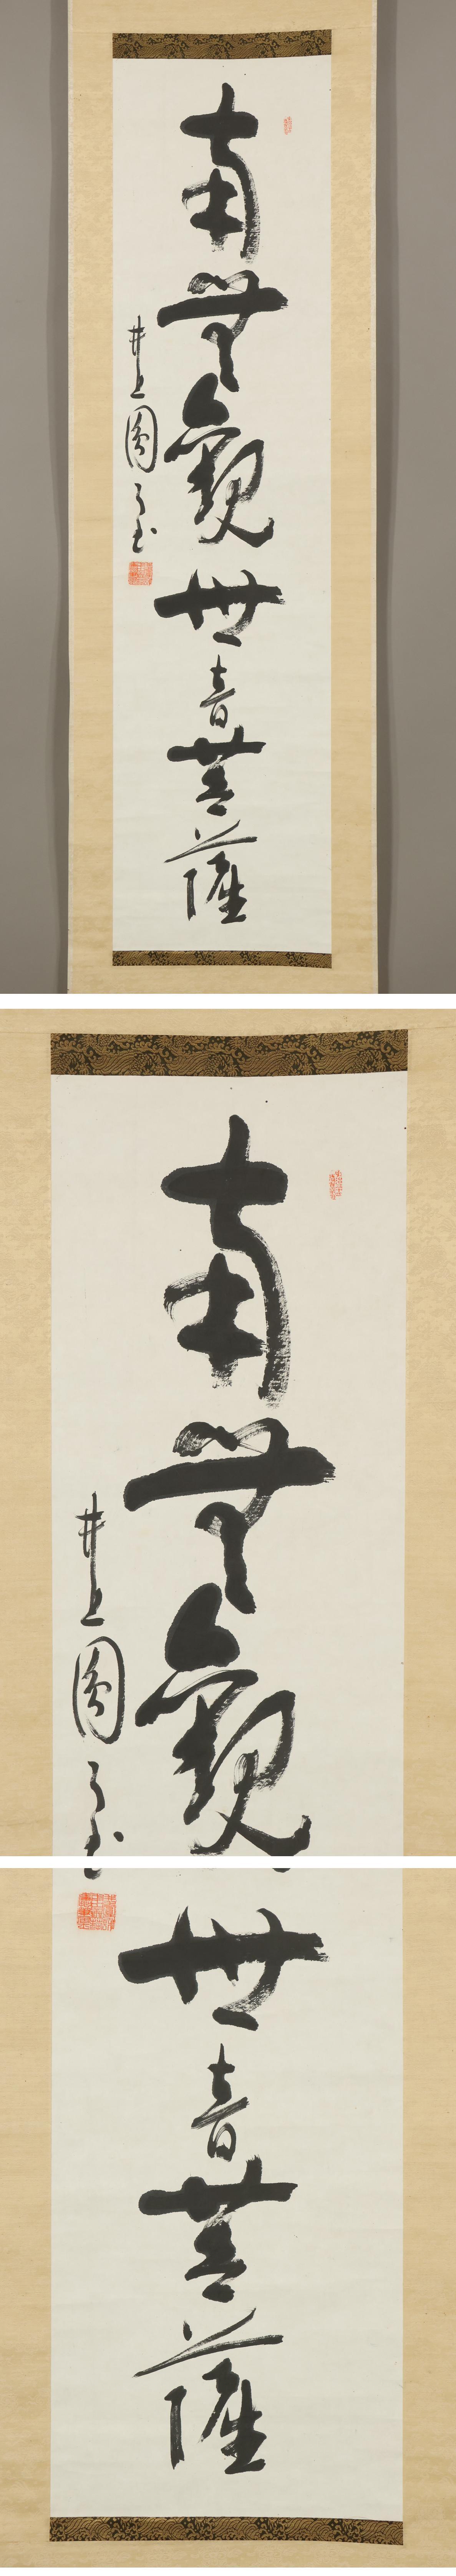 南無觀世音菩薩
井上圓了書
南無觀
井上圓了書
世音菩薩